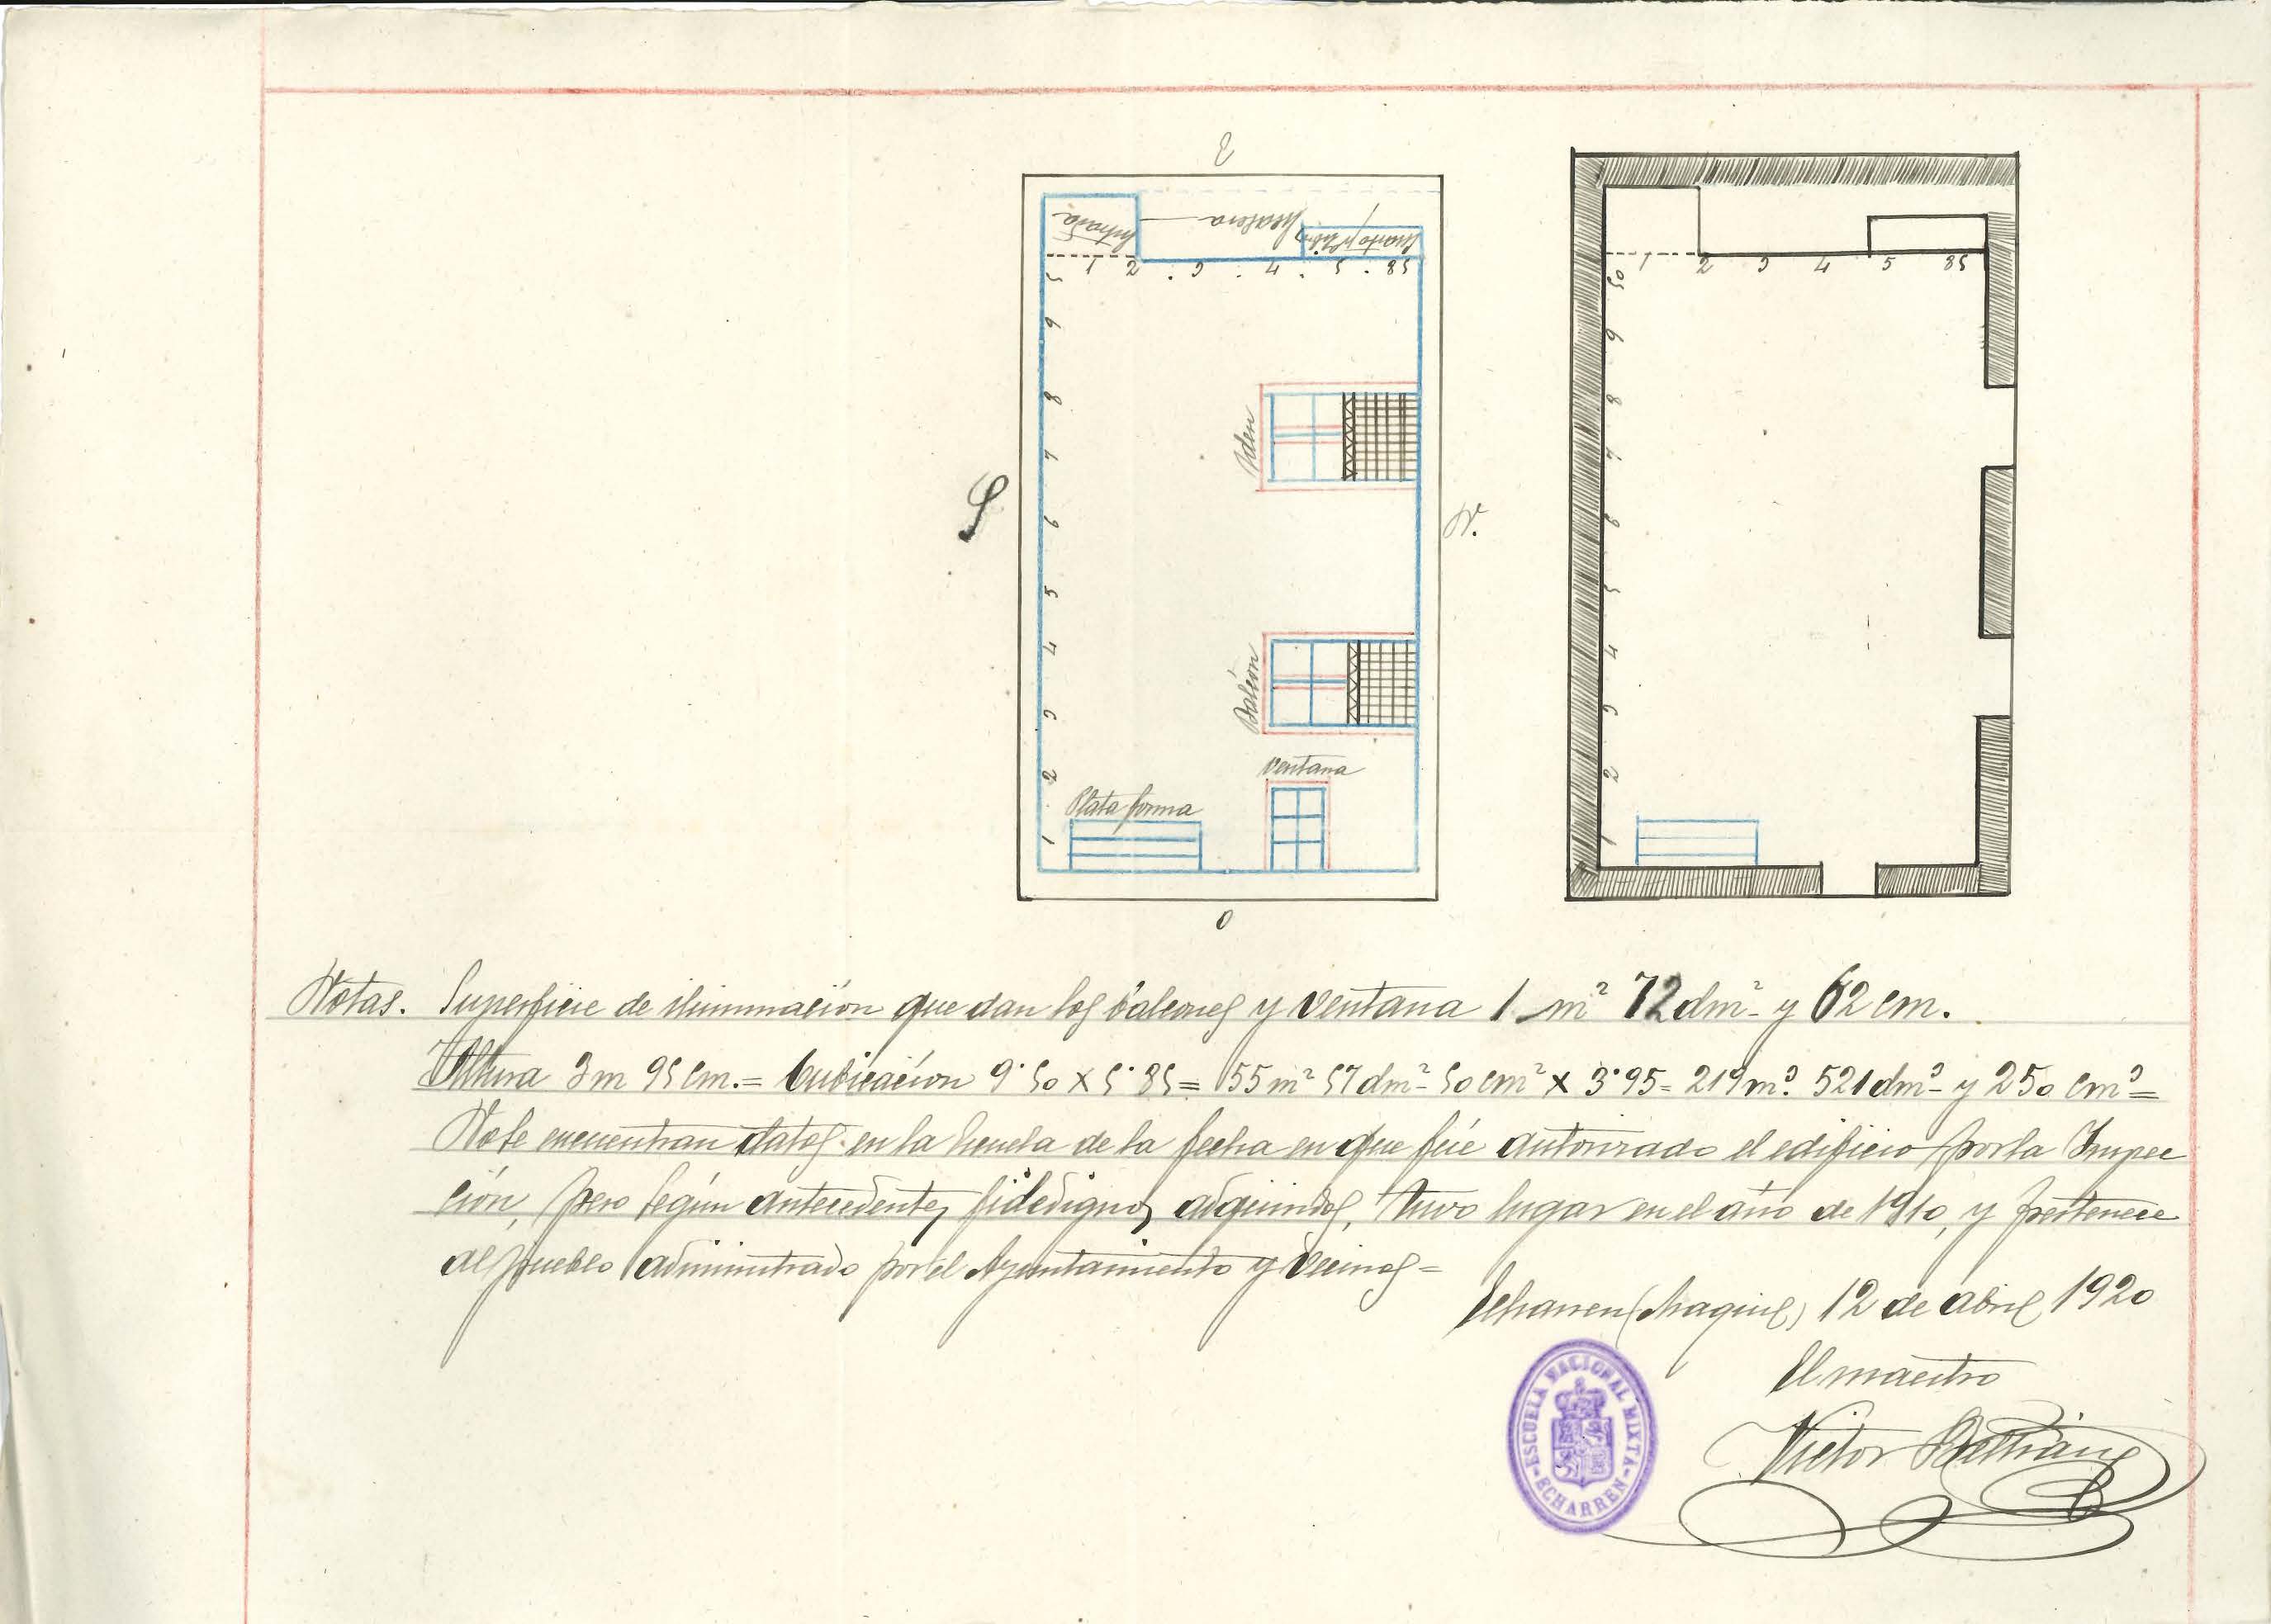 E
Entrada
Escalera
Cuarto p.ª labores
1 2 3 4 5 85
1 2 3 4 5 85
50
9
8
7
6
5
4
3
2
1
50
9
8
7
6
5
4
3
2
1
S
N.
Iden
Balcón
Ventana
Plata forma
O
Notas. Superficie de iluminación que dan los balcones y ventana 1 m² 72 dm² y 62 cm.
Altura 3 m 95 cm. = Cubicación 9'50 x 5'85 = 55 m² 57 dm² 50 cm² x 3'95 = 219 m³. 521 dm³ y 250 cm³ =
No se encuentran datos en la Escuela de la fecha en que fué autorizado el edificio por la Inspec
ción, pero según antecedentes fidedignos adquiridos, tuvo lugar en el año de 1910, y pertenece
al pueblo administrado por el Ayuntamiento y Vecinos =
Echarren (Araquil) 12 de abril 1920
El maestro
Victor Beltrán
ESCUELA NACIONAL MIXTA
ECHARREN